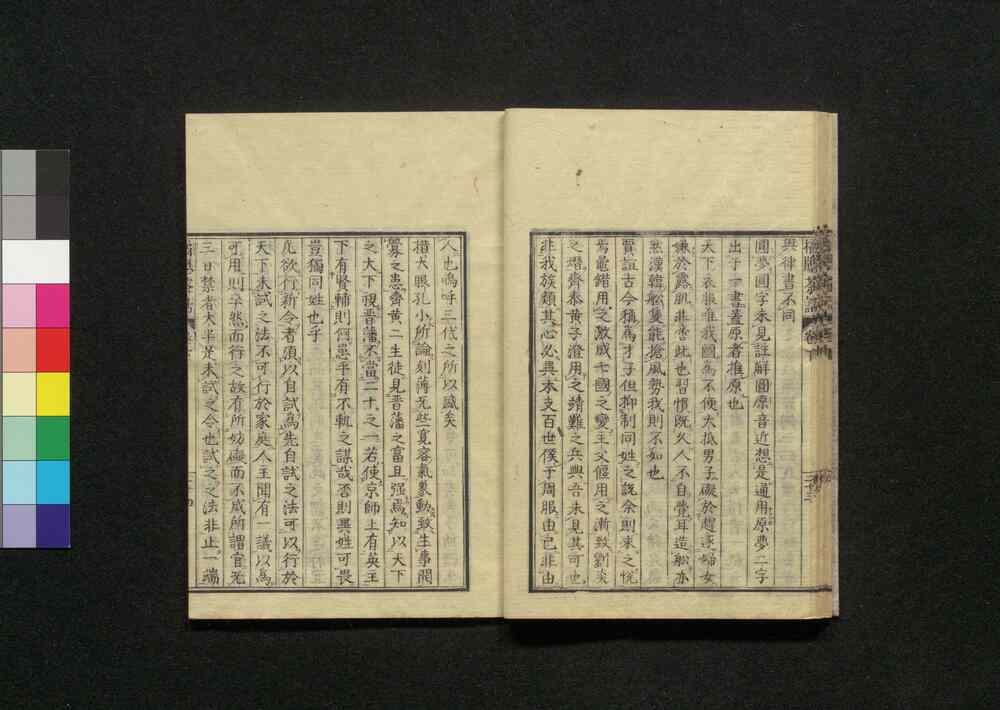 與律書不同
圓夢圓字未見註解圓原音近想是通用原夢二字
出于一書蓋原者推原也
天下衣服唯我國為不便大抵男子礙於趨走婦女
嫌於露肌非啻此也習慣既久人不自覺耳造船亦
然漢韓船隻能搶風勢我則不如也
賈誼古今稱為才子但抑制同姓之說余則未之悅
焉鼂錯用之激成七國之變主父偃用之漸致劉炎
之熸齊泰黃子澄用之靖難之兵興吾未見其可也
非我族類其心必異本支百世僕于周服由己非由
人也嗚呼三代之所以盛矣
措大眼孔小所論刻薄无些寬容氣象動致生事開
釁之患齊黃二生徒見晉藩之富且强焉知以天下
之大下視晉藩不當二十之一若使京師上有英王
下有賢輔則何患乎有不軌之謀哉否則異姓可畏
豈獨同姓也乎
凡欲行新令者須以自試為先自試之法可以行於
天下未試之法不可行於家庭人主聞有一議以為
可用則卒然而行之故有所妨礙而不成所謂官无
三日禁者大半是未試之令也試之之法非止一端